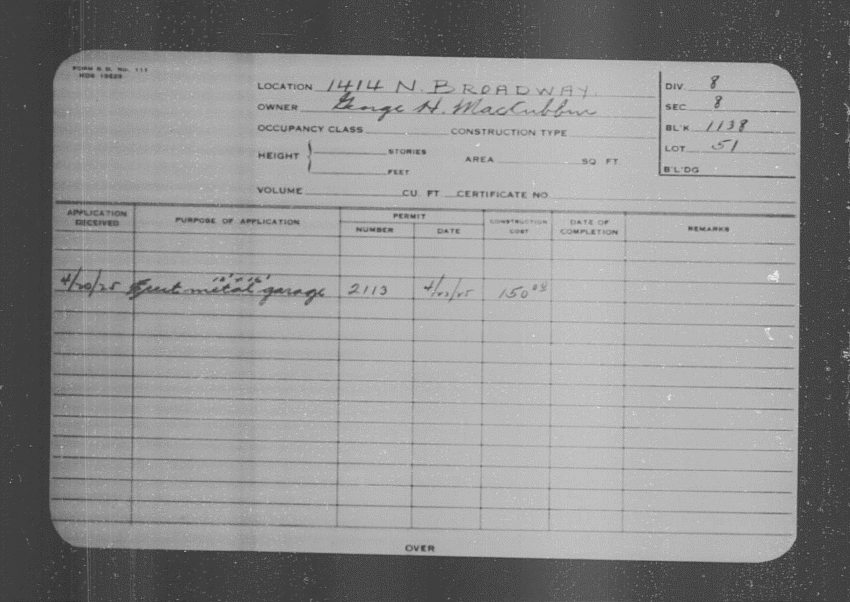 FORM B.D. No. 111
LOCATION 1414 N. BROADWAY.
OWNER George H. MacCubbin
OCCUPANCY CLASS CONSTRUCTION TYPE
HEIGHT STORIES AREA SQ FT
FEET
VOLUME CU. FT CERTIFICATE NO
DIV. 8
SEC 8
BL'K 1138
LOT 51
B'L'DG
APPLICATION RECEIVED PURPOSE OF APPLICATION PERMIT CONSTRUCTION COST DATE OF COMPLETION REMARKS
NUMBER DATE
4/20/25 Erect metal garage 2113 150 00
OVER